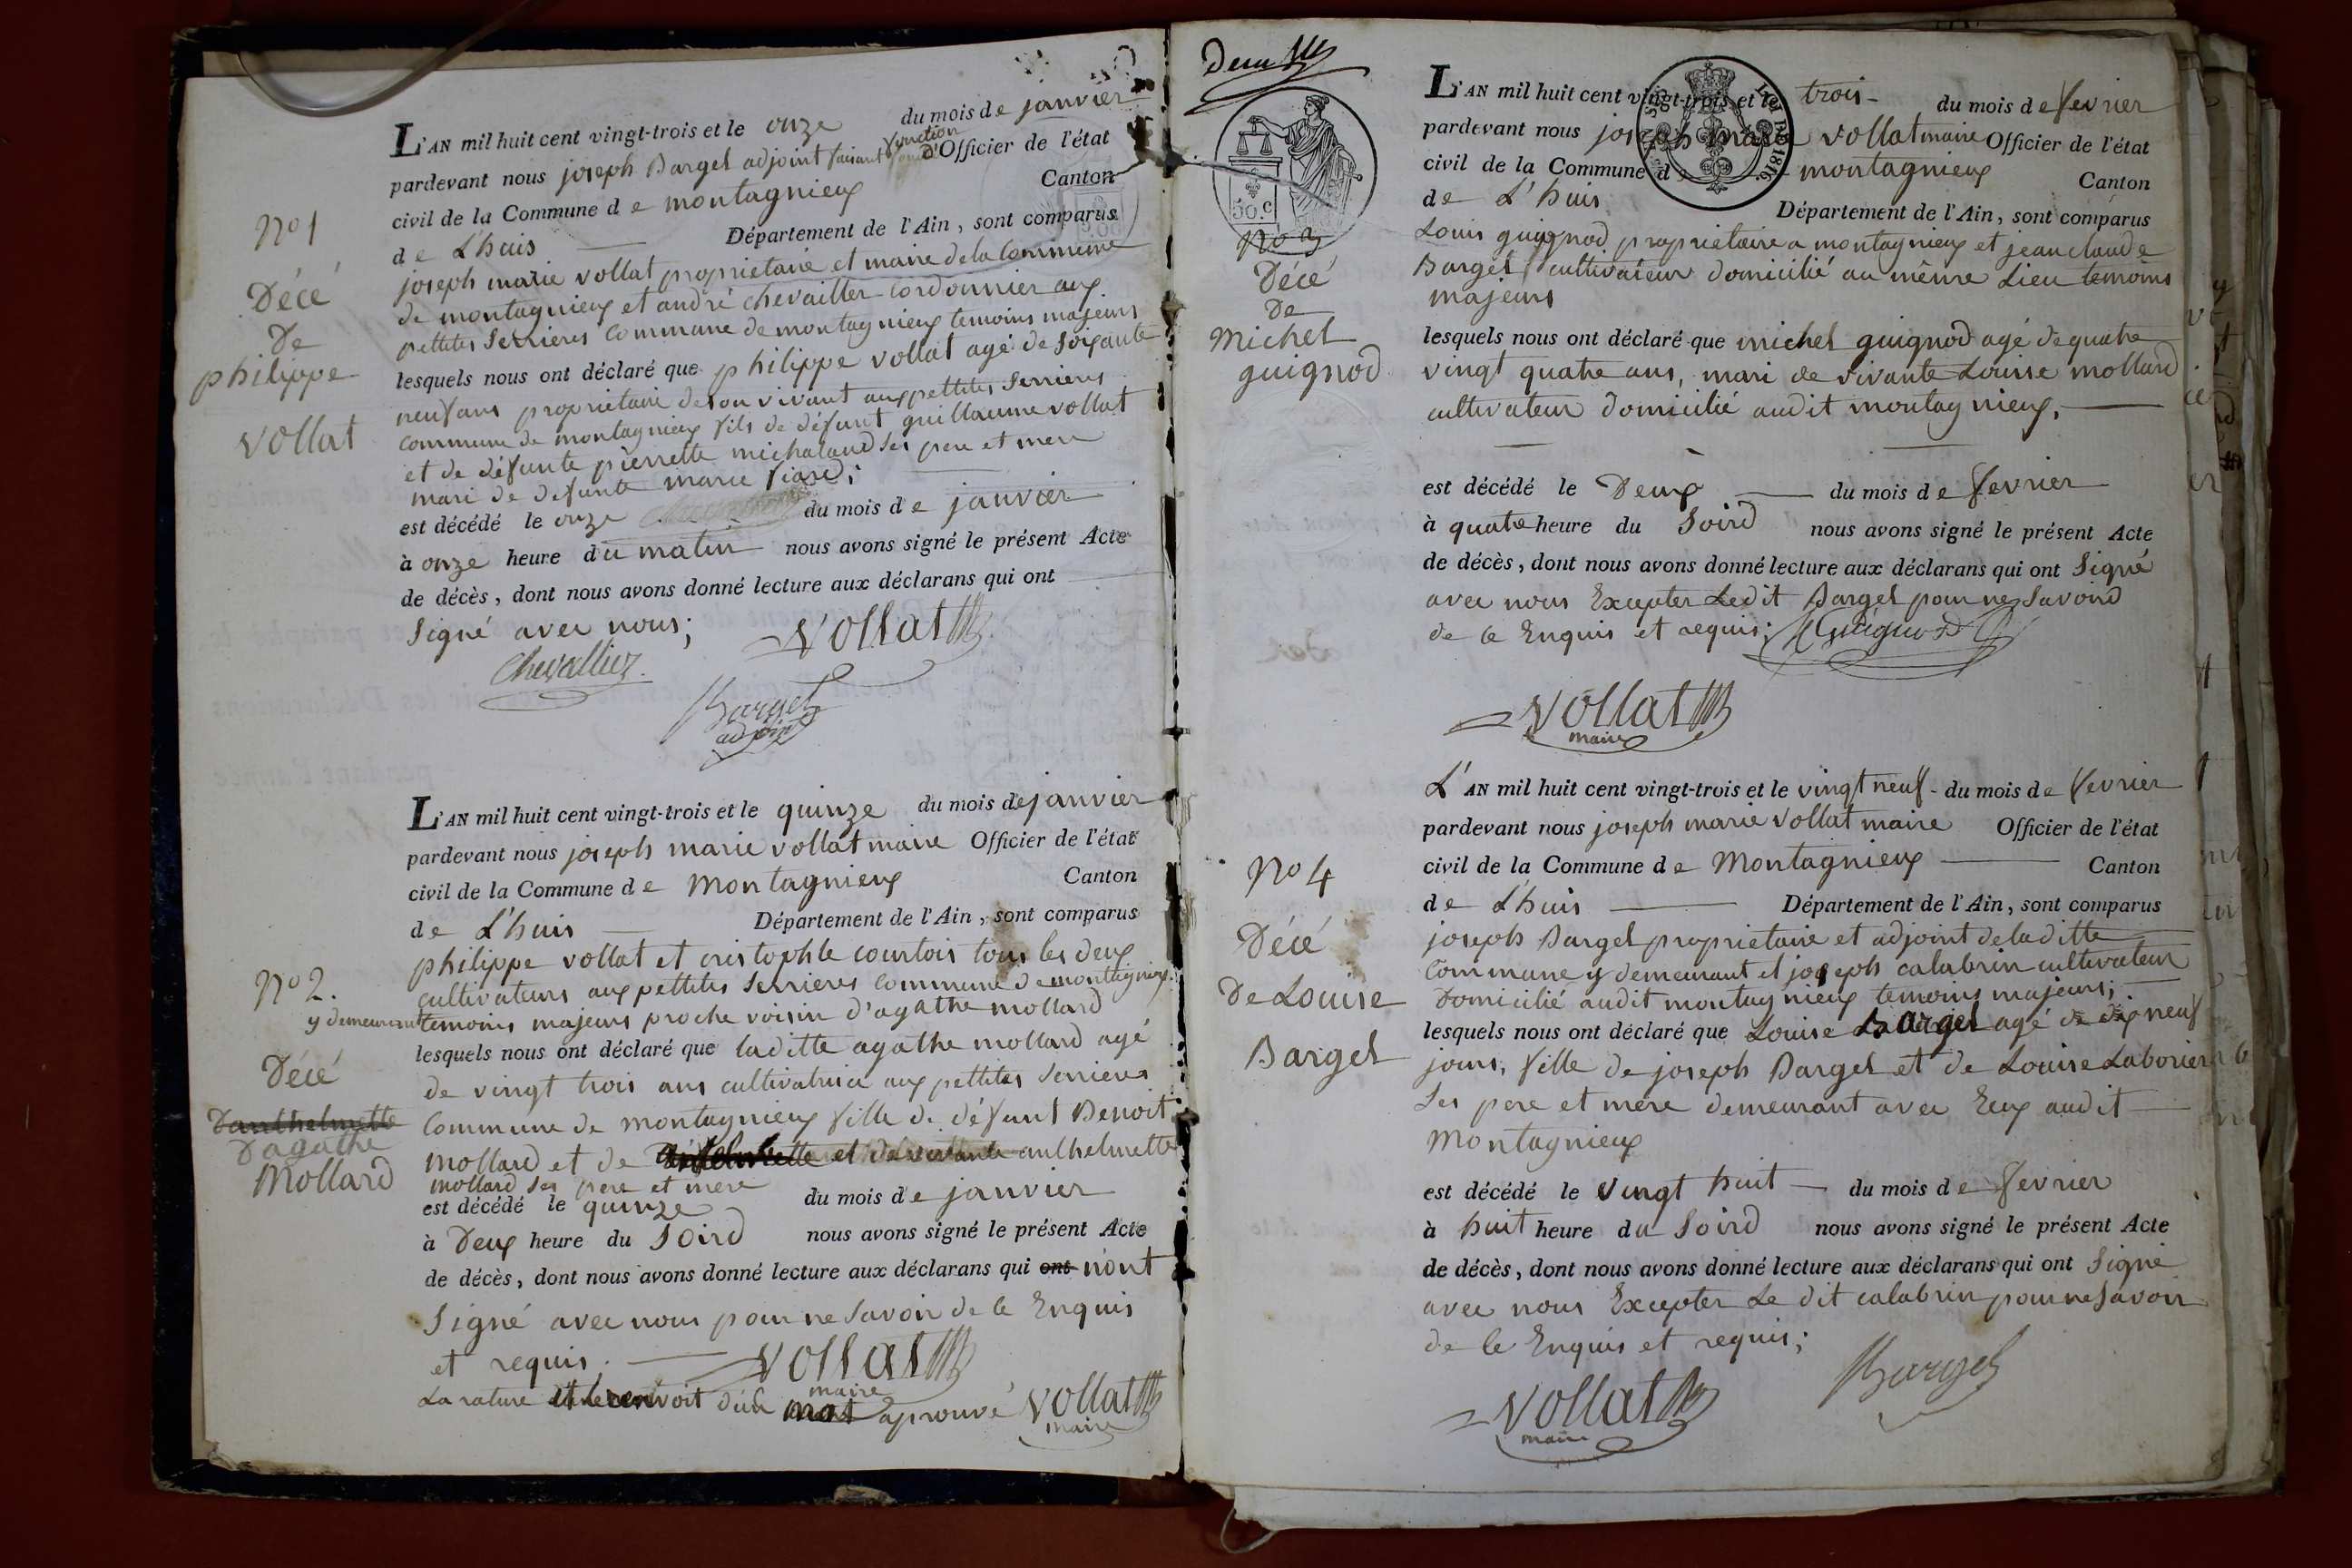 L'AN mil huit cent vingt-trois et le onze du mois de janvier
pardevant nous joseph Bargel adjoint faisant fonction d'Officier de l'état
civil de la Commune de montagnieux Canton
de L'huis Département de l'Ain, sont comparus
joseph marie vollat proprietaire et maire de la Commune
de montagnieux et andré chevallier cordonnier aux
pettites Serrieres Commune de montagnieux temoins majeurs
lesquels nous ont déclaré que philippe vollat agé de soixante
neuf ans proprietaire de son vivant aux pettites Serrieres
commune de montagnieux fils de défunt guillaume vollat
et de défunte pierrette michaland ses pere et mere
mari de defunte marie
est décédé le onze du mois de janvier
à onze heure du matin nous avons signé le présent Acte
de décès, dont nous avons donné lecture aux déclarans qui ont
Signé avec nous;
Vollat
Chevallier
Bargel
adjoint
No 1
Décé
De
philippe
Vollat
L'AN mil huit cent vingt-trois et le quinze du mois de janvier
pardevant nous joseph marie vollat maire Officier de l'état
civil de la Commune de Montagnieux Canton
de L'huis Département de l'Ain, sont comparus
philippe vollat et cristophle courtois tous les deux
cultivateurs aux pettites Serrieres commune de montagnieux
y demeurant temoins majeurs proche voisin d'agathe mollard
lesquels nous ont déclaré que laditte agathe mollard agé
de vingt trois ans cultivatrice aux pettites Serrieres
Commune de montagnieux fille de défunt Benoit
Mollard et de anthelmette
mollard ses pere et mere
est décédé le quinze du mois de janvier
à Deux heure du Soird nous avons signé le présent Acte
de décès, dont nous avons donné lecture aux déclarans qui ont n'ont
Signé avec nous pour ne Savoir de ce Enquis
et requis.
Vollat
maire
La rature et le renvoit d'un mot aprouvé
Vollat
maire
No 2.
Décé
Danthelmette
D'agathe
Mollard
Deux
50. C
L'AN mil huit cent vingt-trois et le trois du mois de fevrier
pardevant nous joseph marie vollat maire Officier de l'état
civil de la Commune de montagnieux Canton
de L'huis Département de l'Ain, sont comparus
Louis guignod proprietaire a montagnieux et jean claude
Bargel cultivateur domicilié au même Lieu temoins
majeurs
lesquels nous ont déclaré que michel guignod agé de quatre
vingt quatre ans, mari de vivante Louise mollard
cultivateur domicilié audit montagnieux,
est décédé le Deux du mois de fevrier
à quatre heure du Soird nous avons signé le présent Acte
de décès, dont nous avons donné lecture aux déclarans qui ont Signé
avec nous Excepter Ledit Bargel pour ne Savoird
de ce Enquis et requis;
Guignod
Vollat
maire
No 3
Décé
De
Michel
guignod
L'AN mil huit cent vingt-trois et le vingt neuf du mois de fevrier
pardevant nous joseph marie vollat maire Officier de l'état
civil de la Commune de Montagnieux Canton
de L'huis Département de l'Ain, sont comparus
joseph Bargel proprietaire et adjoint de laditte
Commune y demeurant et joseph calabrin cultivateur
Domicilié audit montagnieux temoins majeurs;
lesquels nous ont déclaré que Louise Bargel agé de dix neuf
jours, fille de joseph Bargel et de Louise Laborier
Ses pere et mere demeurant avec Eux audit
Montagnieux
est décédé le vingt huit du mois de fevrier
à huit heure du Soird nous avons signé le présent Acte
de décès, dont nous avons donné lecture aux déclarans qui ont Signé
avec nous Excepter Le dit calabrin pour ne Savoir
de ce Enquis et requis;
Bargel
Vollat
maire
No 4
Décé
De Louise
Bargel